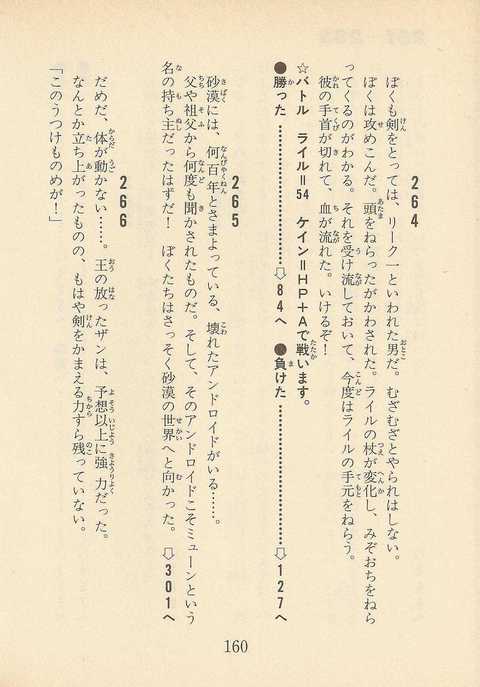 264
ぼくも剣をとっては、リーク一といわれた男だ。むざむざとやられはしない。
ぼくは攻めこんだ。頭をねらったがかわされた。ライルの杖が変化し、みぞおちをねら
ってくるのがわかる。それを受け流しておいて、今度はライルの手元をねらう。
彼の手首が切れて、血が流れた。いけるぞ！
☆バトル ライル＝54 ケイン＝HP＋Aで戦います。
●勝った……………………⇨84へ ●負けた……………………⇨127へ
265
砂漠には、何百年とさまよっている、壊れたアンドロイドがいる……。
父や祖父から何度も聞かされたものだ。そして、そのアンドロイドこそミューンという
名の持ち主だったはずだ！ ぼくたちはさっそく砂漠の世界へと向かった。 ⇨301へ
266
だめだ、体が動かない……。王の放ったザンは、予想以上に強力だった。
なんとか立ち上がったものの、もはや剣をかまえる力すら残っていない。
「このうつけものめが！」
160